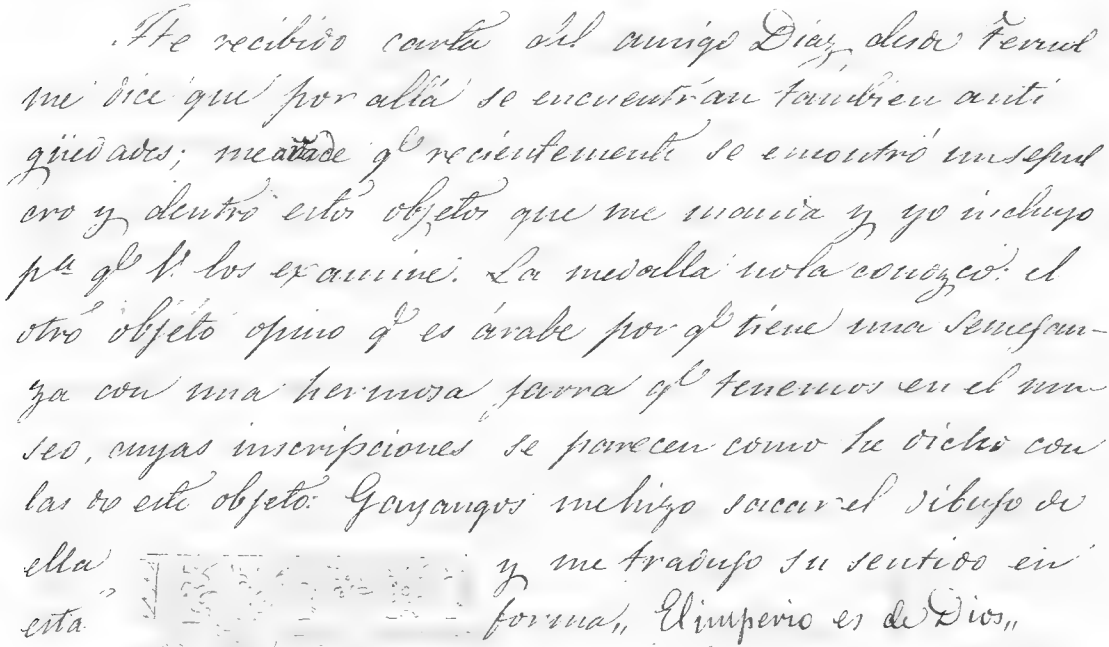 He recibido carta del amigo Diaz desde Ferrol
me dice que por allá se encuentran tambien anti
güedades; me añade qe recientemente se encontró un sepul
cro y dentro estos objetos que me manda y yo incluyo
pa qe V. los examine. La medalla no la conozco: el
otro objeto opino qe es árabe por qe tiene una semejan-
za con una hermosa jarra qe tenemos en el mu
seo, cuyas inscripciones se parecen como he dicho con
las de este objeto: Gayangos me hizo sacar el dibujo de
ella y me tradujo su sentido en
esta forma,, El imperio es de Dios,,